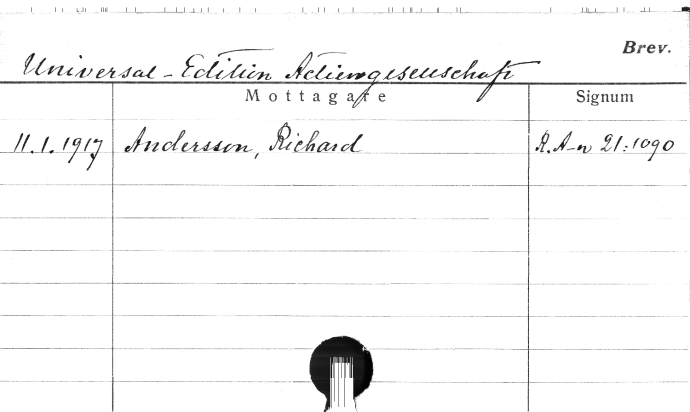 Brev.
Universal-Edition Actiengesellschaft
Mottagare Signum
11.1.1917 Andersson, Richard R.A-n 21:1090